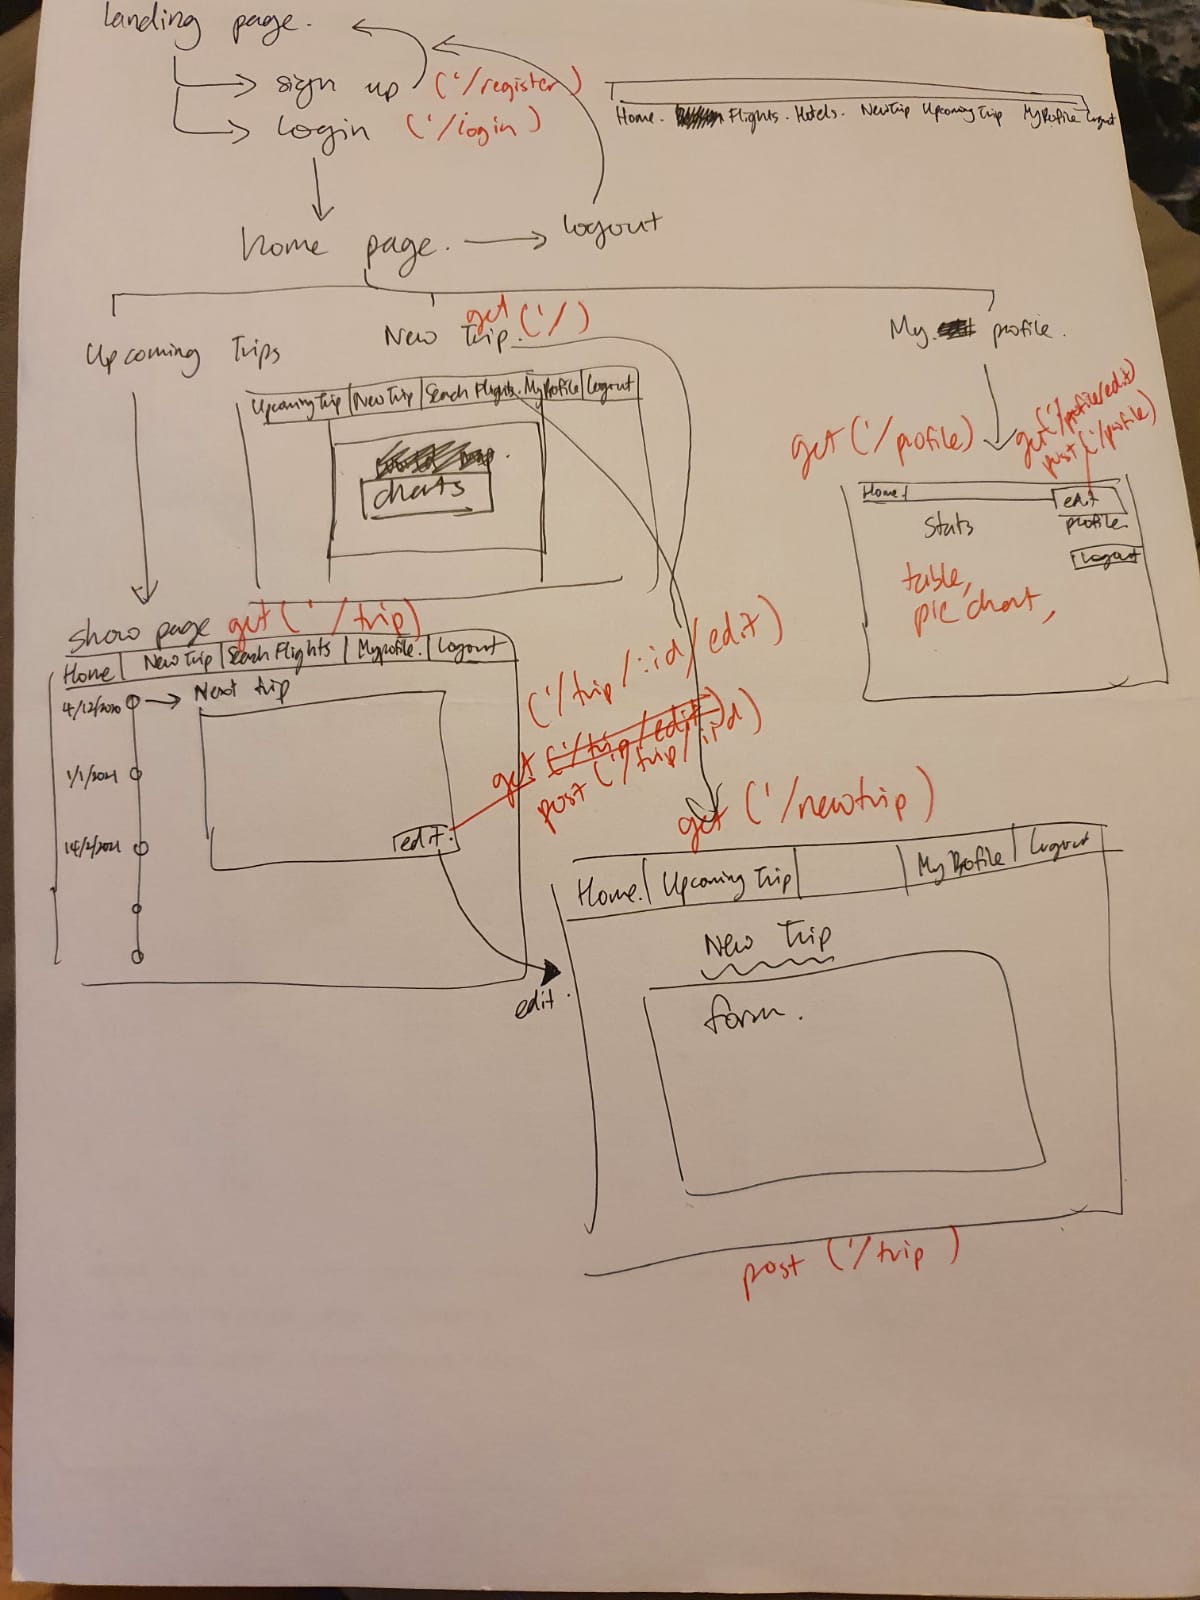 landing page.
sign up ('/register)
login ('/login)
Home. Flights. Hotels. New Trip Upcoming Trip My Profile Logout
home page. logout
get ('/)
Upcoming Trips New Trip. My profile.
Upcoming Trip New Trip Seach Flights. My Profile Logout
charts
get ('/profile) get ('/profile/edit)
post ('/profile)
Home edit
profile.
Stats
Logout
table,
pie chart,
show page get ('/trip)
Home New Trip Seach Flights Myprofile. Logout
4/12/2020 Next trip
1/1/2021
14/2/2021
edit.
('/trip/:id/edit)
get ('/trip/edit)
post ('/trip/:id)
edit.
get ('/newtrip)
Home. Upcoming Trip My Profile Logout
New Trip
form.
post ('/trip )